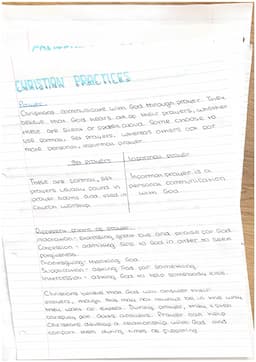 CHRISTIAN PRACTICES
Prayer
Christians communicate with God through prayer. They
believe that God hears all of their prayers, whether
these are silent or spoken aloud. Some choose to
use formal, set prayers, whereas others opt for
more personal, informal prayer.
Set prayers Informal prayer
These are formal, set
prayers usually found in
prayer books and used in
church worship.
Informal prayer is a
personal communication
with God.
Different forms of Prayer
Adoration - expressing great love and praise for God
Confession - admitting sins to God in order to seek
forgiveness
Thanksgiving - thanking God
Supplication - asking God for something
Intercession - asking God to help somebody else.
Christians believe that God will answer their
prayers, though this may not always be in the way
they want or expect. During prayer, may
for God's answers. Prayer can help
Christians develop a relationship with God and
comfort them during times of suffering